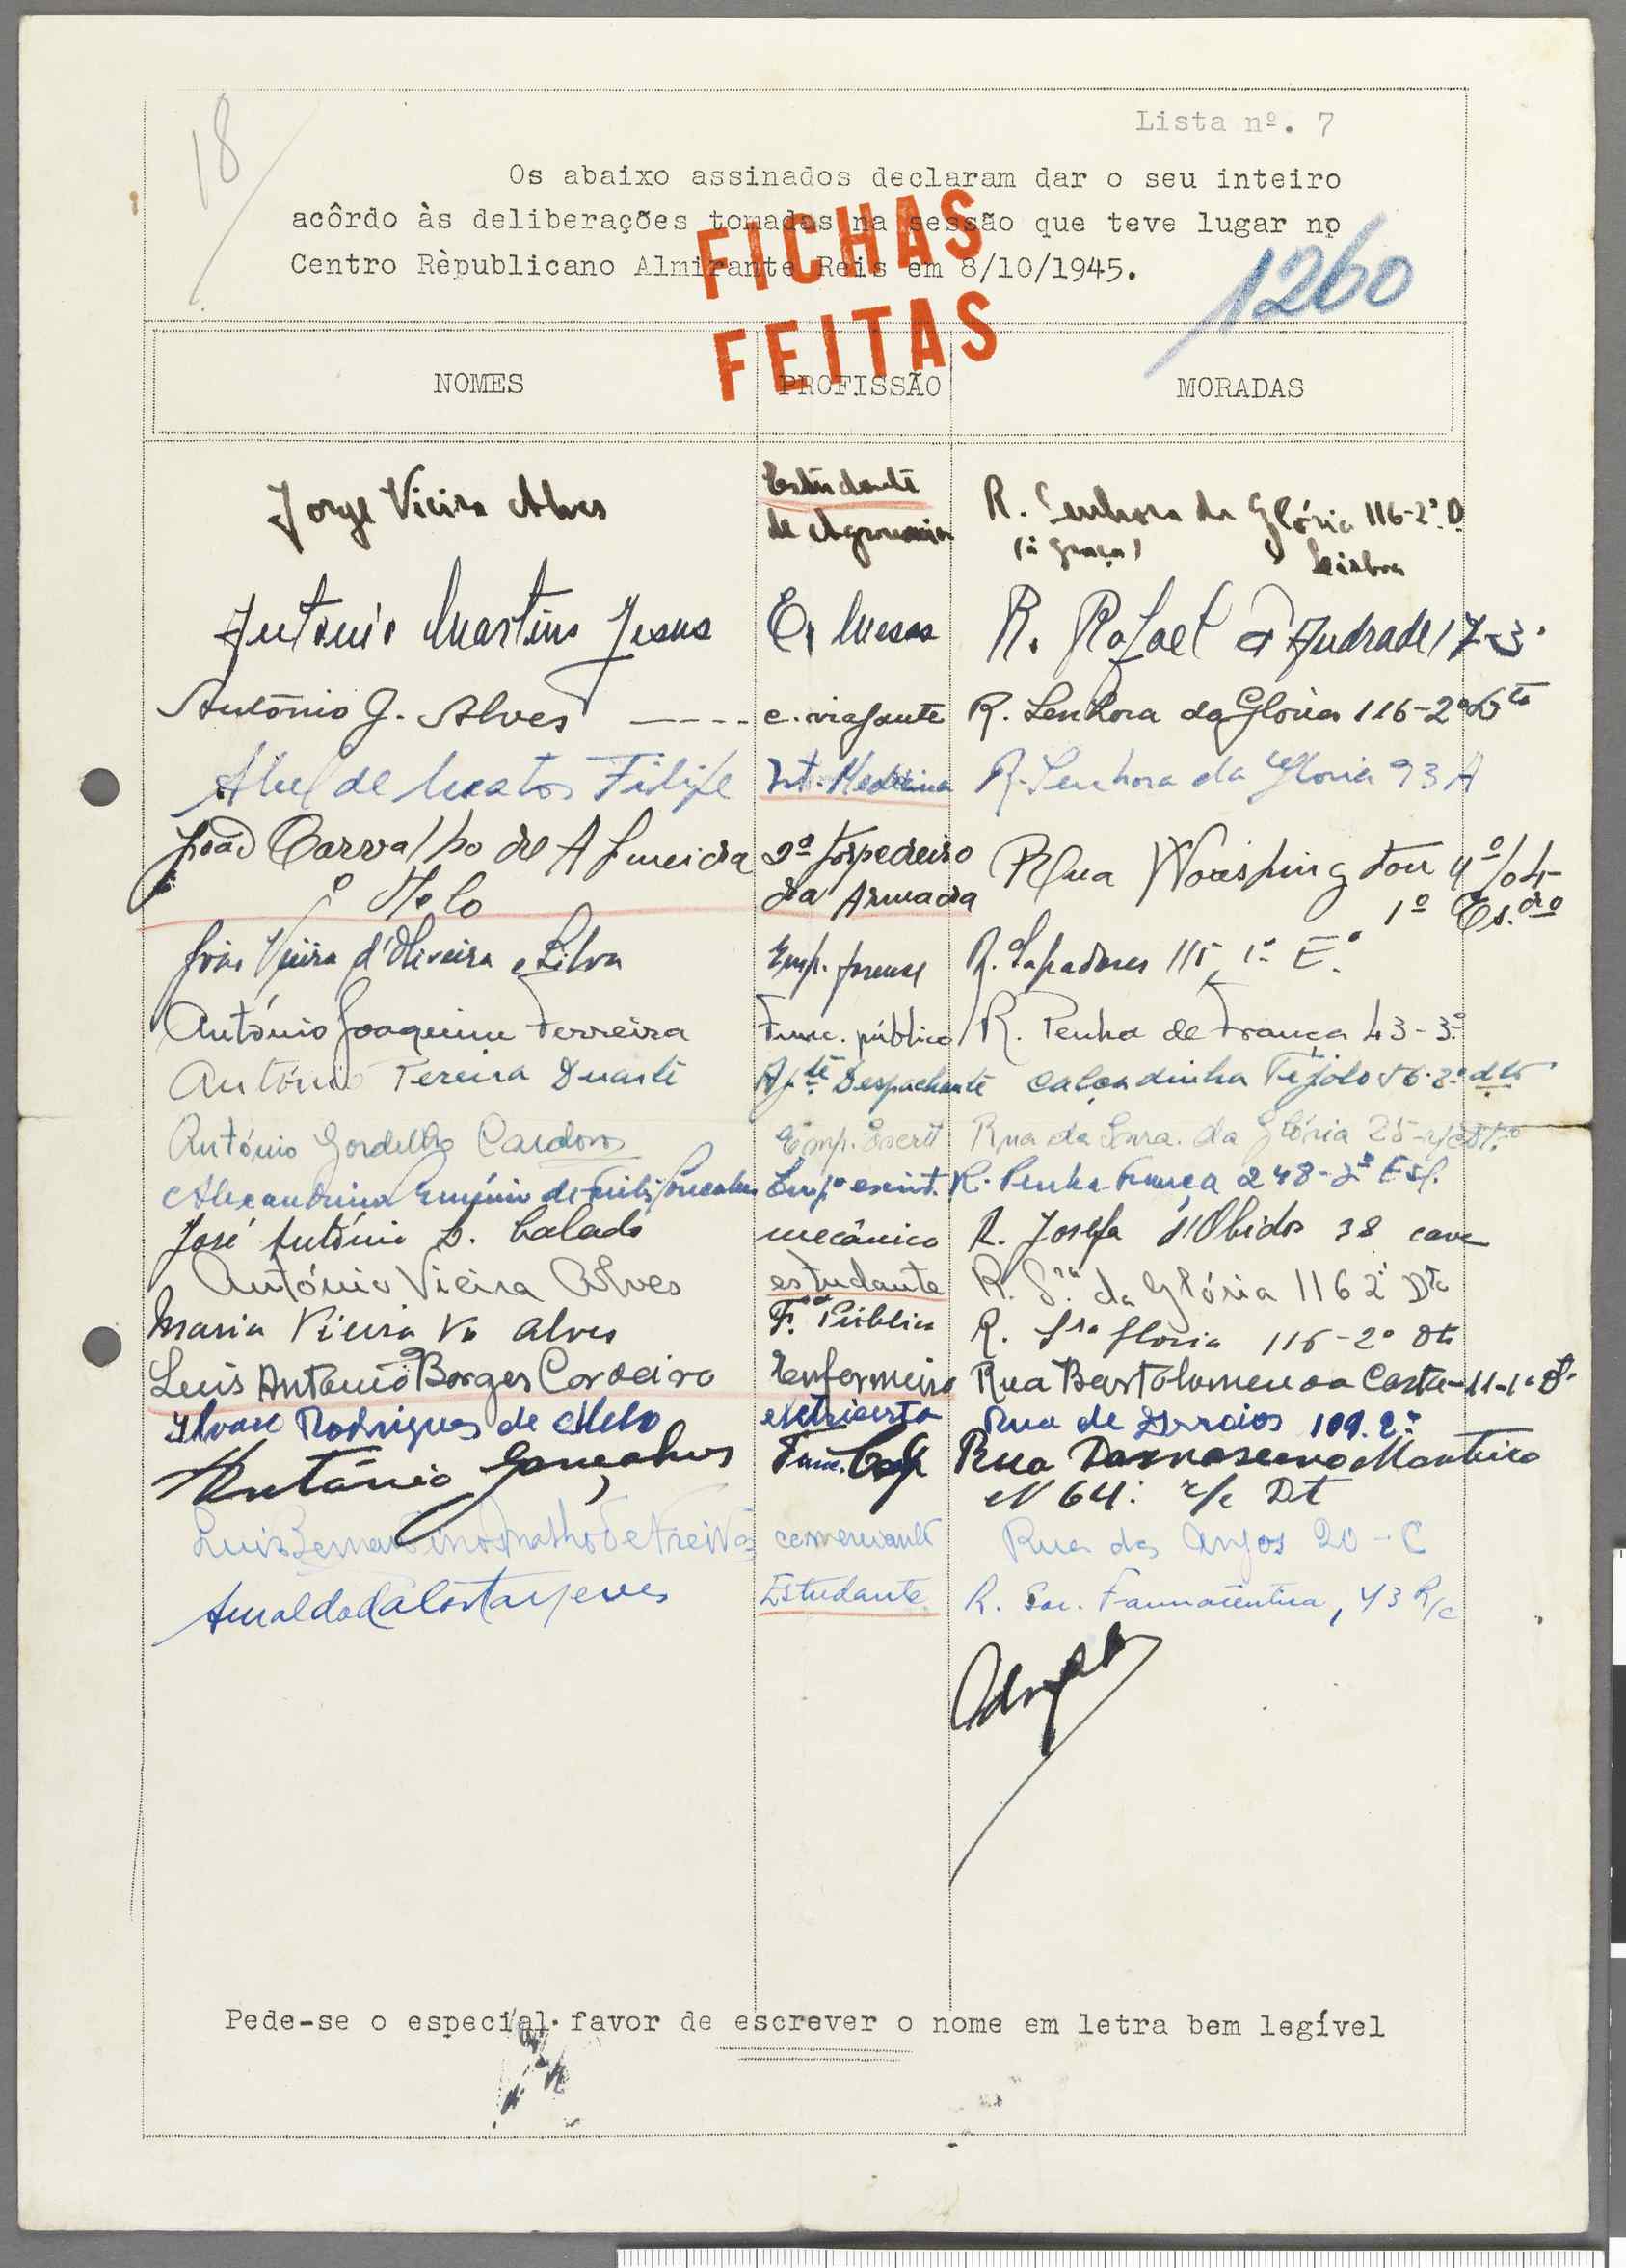 18
Lista nº. 7
Os abaixo assinados declaram dar o seu inteiro
acôrdo às deliberações tomadas na sessão que teve lugar no
Centro Rèpublicano Almirante Reis em 8/10/1945.
FICHAS
FEITAS
1260
NOMES PROFISSÃO MORADAS
Jorge Vieira Alves Estudante de Agronomia R. Senhora da Glória 116-2º D.
(à Graça) Lisboa
António Martins Jesus E. Mesas R. Rafael d'Andrade 17-3º
António J. Alves ---- c. viajante R. Senhora da Glória 116-2º Dto
Abel de Matos Filipe Est. Medicina R. Senhora da Gloria 93 A
João Carvalho de Almeida 2º torpedeiro Rua Washington nº
e Melo da Armada 1º Es.dro
João Vieira d'Oliveira e Silva Emp. forense R. Sapadores 115 1º E.
António Joaquim Ferreira Func. público R. Penha de França 43-3º
António Pereira Duarte Ajte Despachante Calçadinha Tijolo 56-2º dto
António Gordelho Cardoso Emp. Escrit Rua da Snra. da Glória 25-r/c Dto
Alexandrina de Gonçalves Empº escrit. R. Penha França 248-2º Esq.
José António D. Calado mecânico R. Josefa d'Obidos 38 cave
António Vieira Alves estudante R. Sra da Glória 116 2º Dto
Maria Vieira Alves F. Pública R. Sra Gloria 116-2º Dto
Luis António Borges Cordeiro Enfermeiro Rua Bartolomeu da Costa-11-1º D.
Alvaro Rodrigues de Melo eletricista Rua de Arroios 109. 2º
António Gonçalves Func. Rua Damasceno Monteiro
Nº 64: r/c Dt
Luis Bernardino de Freitas comerciante Rua dos Anjos 20-C
Arnaldo da Costa Neves Estudante R. Soc. Farmacêutica, 43 R/c
Pede-se o especial favor de escrever o nome em letra bem legível